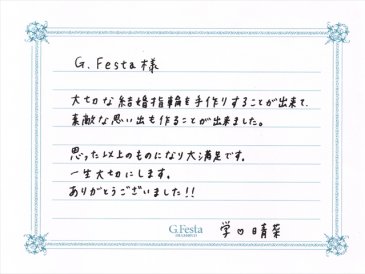 G.Festa様
大切な結婚指輪を手作りすることが出来て、
素敵な思い出も作ることが出来ました。
思った以上のものになり大満足です。
一生大切にします。
ありがとうございました!!
G.Festa
学♡晴菜